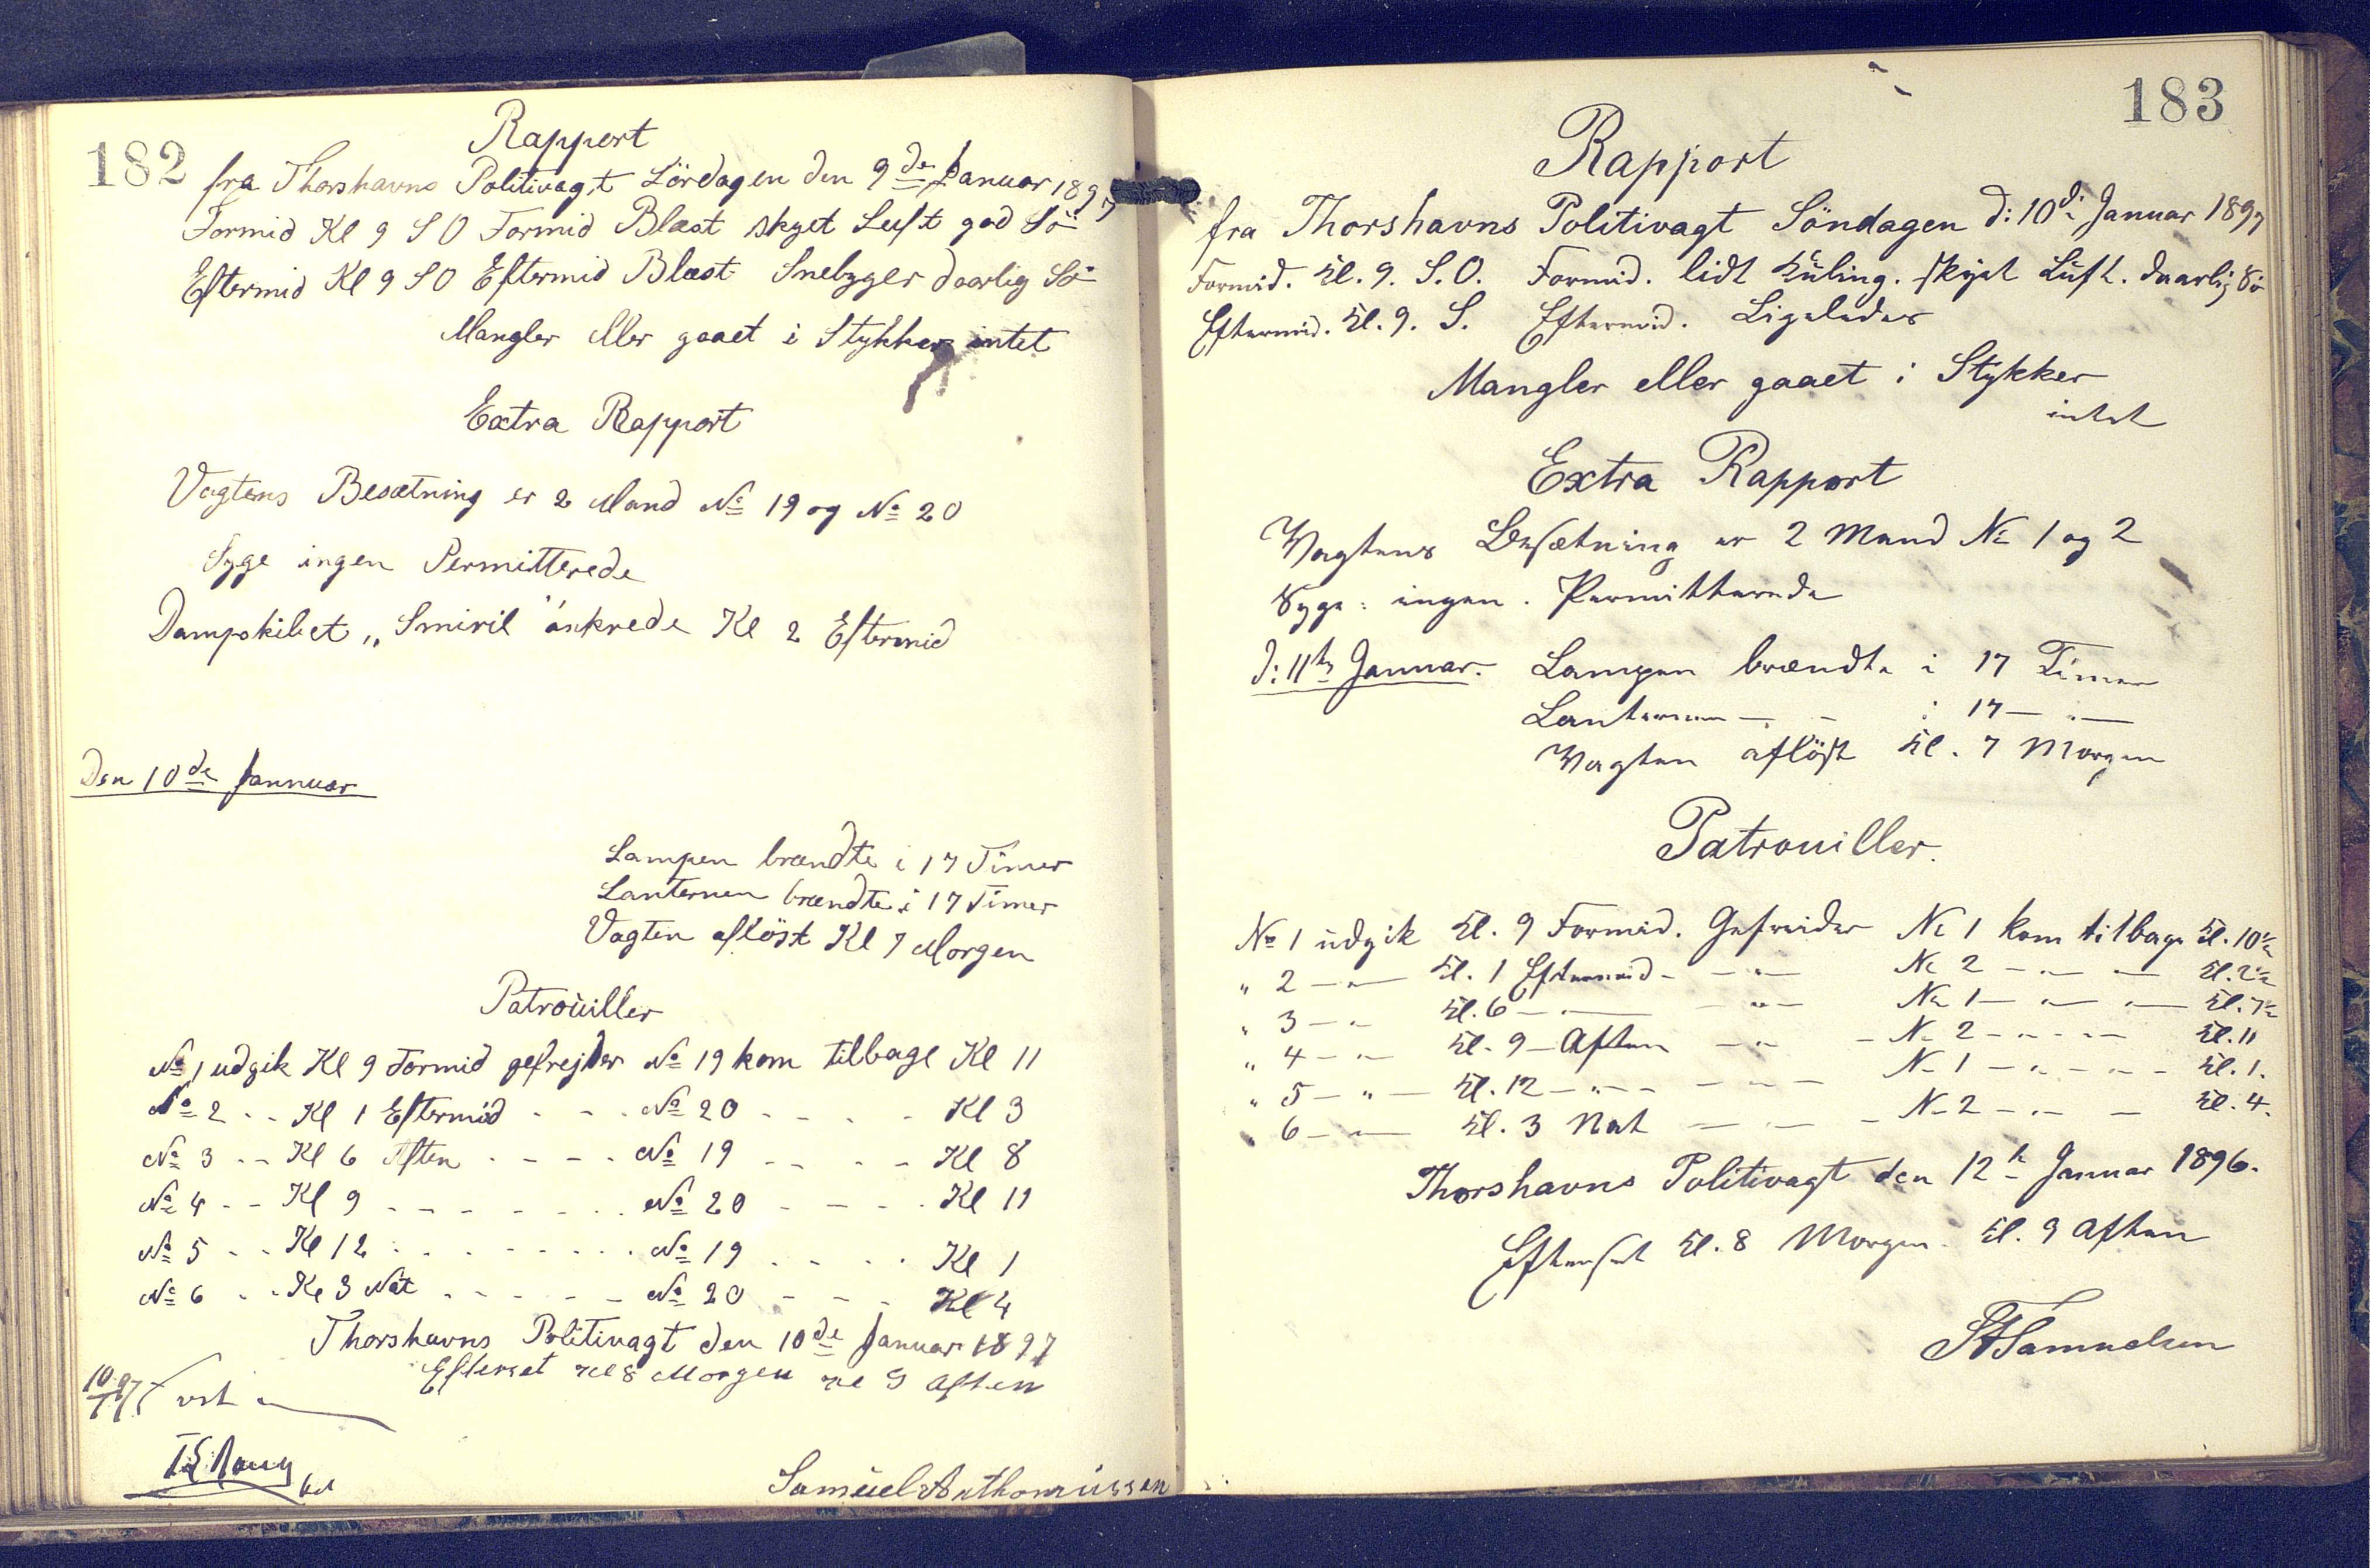 182
Rapport
fra Thorshavns Politivagt Lördagen den 9de Januar 1897
Formid Kl 9 S O Formid Blæst skyet Luft god Sö
Eftermid Kl 9 S O Eftermid Blæst Snebyger daarlig Sö
Mangler eller gaaet i Stykker intet
Extra Rapport
Vagtens Besætning er 2 Mand No 19 og No 20
Syge ingen Permitterede
Dampskibet „Smiril" ánkrede Kl 2 Eftermid
Den 10de Januar
Lampen brændte i 17 Timer
Lanternen brændte i 17 Timer
Vagten aflöst Kl 7 Morgen
Patrouiller
No 1 udgik Kl 9 Formid gefrejder No 19 kom tilbage Kl 11
No 2 - - Kl 1 Eftermid - - - No 20 - - - - Kl 3
No 3 - - Kl 6 Aften - - - - No 19 - - - - Kl 8
No 4 - - Kl 9 - - - - - - - No 20 - - - - Kl 11
No 5 - - Kl 12 - - - - - - - No 19 - - - - Kl 1
No 6 - - Kl 3 Nat - - - - - No 20 - - - Kl 4
Thorshavns Politivagt den 10de Januar 1897
Efterset Kl 8 Morgen Kl 9 Aften
10/1 97
Samuel Anthoniussen
183
Rapport
fra Thorshavns Politivagt Söndagen d: 10de Januar 1897
Formid. Kl. 9. S.O. Formid. lidt Kuling. skyet Luft. daarlig Sö
Eftermid. Kl. 9. S. Eftermid. Ligeledes
Mangler eller gaaet i Stykker
intet
Extra Rapport
Vagtens Besætning er 2 Mand No 1 og 2
Syge: ingen. Permitterede
d: 11te Januar. Lampen brændte i 17 Timer
Lanternen — - i 17 — " —
Vagten aflöst Kl. 7 Morgen
Patrouiller.
No 1 udgik Kl. 9 Formid. Gefreider No 1 kom tilbage Kl. 10½
" 2 — " — Kl. 1 Eftermid - - " — No 2 - " — — Kl. 2½
" 3 — " Kl. 6 — " — - " — No 1 — " — " — Kl. 7½
" 4 - " — Kl. 9 — Aften — " - No 2 - " - " — Kl. 11
" 5 — " — Kl. 12 — " — - — " — No 1 - " - " - Kl. 1.
" 6 — " — Kl. 3 Nat — " — - No 2 - " — — Kl. 4.
Thorshavns Politivagt den 12te Januar 1896.
Efterset Kl. 8 Morgen. Kl. 9 Aften
Samuelsen